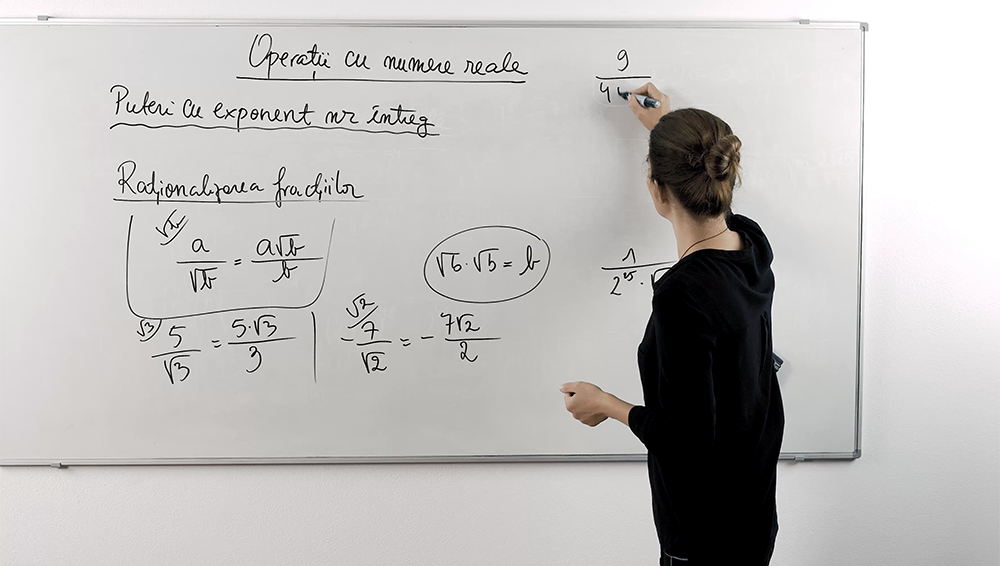 Operații cu numere reale
Puteri cu exponent nr întreg
Raționalizarea fracțiilor
√b) a/√b = a√b/b
√b·√b = b
√3) 5/√3 = 5·√3/3
√2) -7/√2 = -7√2/2
9/4
1/2²⁵·√